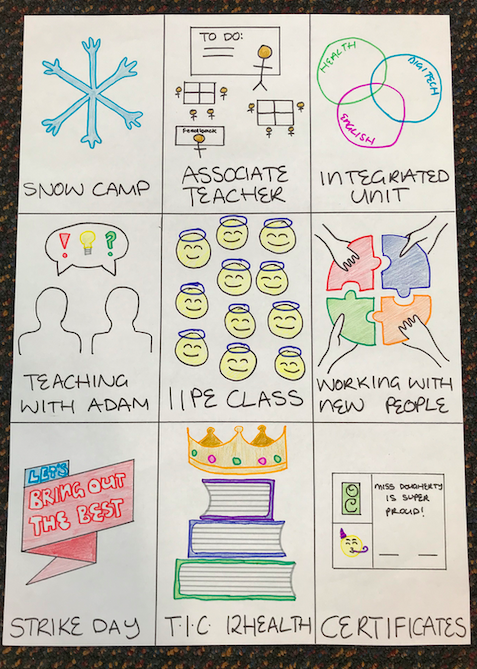 SNOW CAMP
TO DO:
Feedback
ASSOCIATE
TEACHER
HEALTH
DIGITECH
ENGLISH
INTEGRATED
UNIT
! ?
TEACHING
WITH ADAM
11PE CLASS
WORKING WITH
NEW PEOPLE
LET'S
BRING OUT
THE BEST
STRIKE DAY
T.I.C. 12HEALTH
MISS DOUGHERTY
IS SUPER
PROUD!
CERTIFICATES